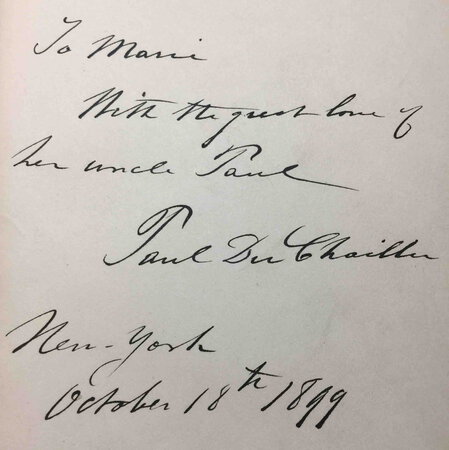 To Marie
With the great love of
her uncle Paul
Paul Du Chaillu
New-York
October 18th 1899